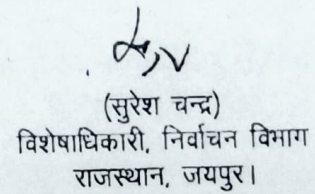 (सुरेश चन्द्र)
विशेषाधिकारी, निर्वाचन विभाग
राजस्थान, जयपुर।